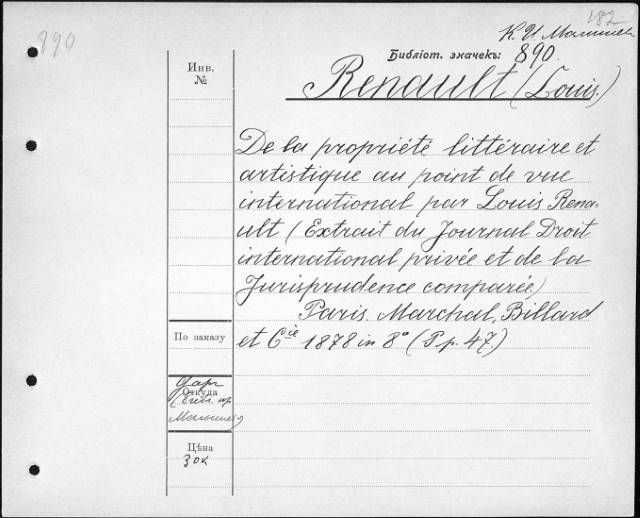 182
890
К. И. Малышев
Библіот. значекъ: 890.
Инв.
№
Renault (Louis.)
De la propriété littéraire et
artistique au point de vue
international par Louis Rena-
ult (Extrait du Journal Droit
international privée et de la
Jurisprudence comparée)
Paris. Marchal, Billard
По заказу
et Cie 1878 in 8° (Pp. 47.)
Даръ
Откуда
Малышева)
Цѣна
30к